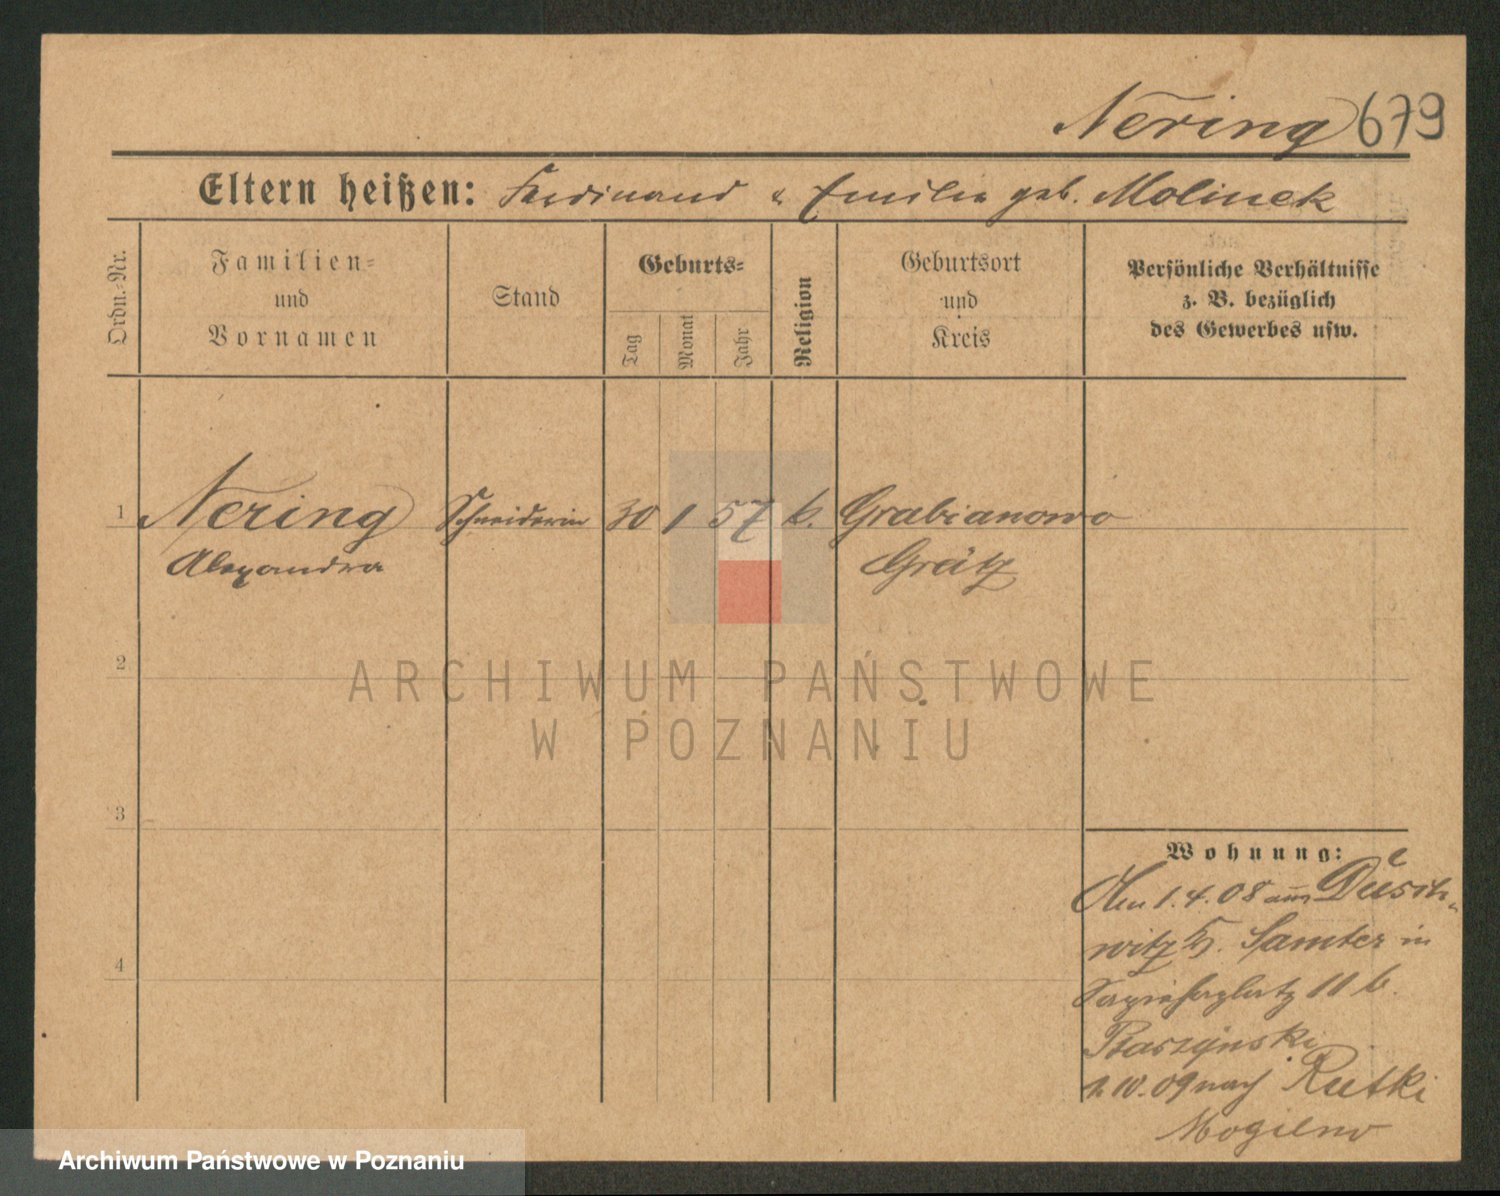 Nering 679
Eltern heißen: Ferdinand u Emilie geb. Molinek
Ordn.-Nr.
Familien-
und
Vornamen
Stand
Geburts-
Tag
Monat
Jahr
Religion
Geburtsort
und
Kreis
Persönliche Verhältnisse
z. B. bezüglich
des Gewerbes usw.
1 Nering Schneiderin 30 1 57 k. Grabianowo
Alexandra Grätz
2
ARCHIWUM PAŃSTWOWE
W POZNANIU
3
4
Wohnung:
1.4.08 aus
witz Samter in
Sapiehaplatz 11 b.
10.09 nach Rutki
Mogilno
Archiwum Państwowe w Poznaniu